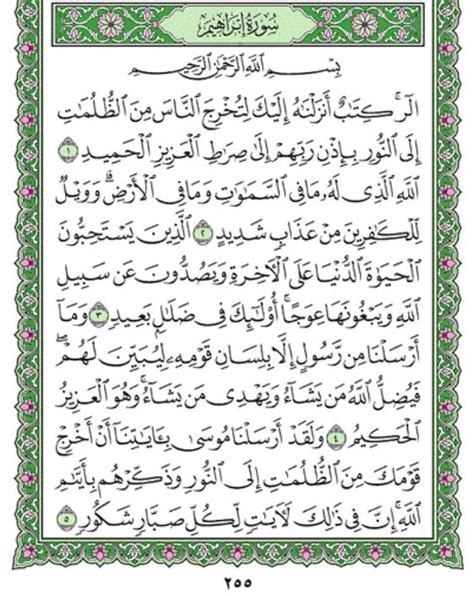 سُورَةُ إِبْرَاهِيمَ
بِسْمِ ٱللَّهِ ٱلرَّحْمَٰنِ ٱلرَّحِيمِ
الٓر ۚ كِتَٰبٌ أَنزَلْنَٰهُ إِلَيْكَ لِتُخْرِجَ ٱلنَّاسَ مِنَ ٱلظُّلُمَٰتِ
إِلَى ٱلنُّورِ بِإِذْنِ رَبِّهِمْ إِلَىٰ صِرَٰطِ ٱلْعَزِيزِ ٱلْحَمِيدِ ١
ٱللَّهِ ٱلَّذِى لَهُۥ مَا فِى ٱلسَّمَٰوَٰتِ وَمَا فِى ٱلْأَرْضِ ۗ وَوَيْلٌ
لِّلْكَٰفِرِينَ مِنْ عَذَابٍ شَدِيدٍ ٢ ٱلَّذِينَ يَسْتَحِبُّونَ
ٱلْحَيَوٰةَ ٱلدُّنْيَا عَلَى ٱلْءَاخِرَةِ وَيَصُدُّونَ عَن سَبِيلِ
ٱللَّهِ وَيَبْغُونَهَا عِوَجًا ۚ أُو۟لَٰٓئِكَ فِى ضَلَٰلٍۭ بَعِيدٍ ٣ وَمَآ
أَرْسَلْنَا مِن رَّسُولٍ إِلَّا بِلِسَانِ قَوْمِهِۦ لِيُبَيِّنَ لَهُمْ ۖ
فَيُضِلُّ ٱللَّهُ مَن يَشَآءُ وَيَهْدِى مَن يَشَآءُ ۚ وَهُوَ ٱلْعَزِيزُ
ٱلْحَكِيمُ ٤ وَلَقَدْ أَرْسَلْنَا مُوسَىٰ بِـَٔايَٰتِنَآ أَنْ أَخْرِجْ
قَوْمَكَ مِنَ ٱلظُّلُمَٰتِ إِلَى ٱلنُّورِ وَذَكِّرْهُم بِأَيَّىٰمِ
ٱللَّهِ ۚ إِنَّ فِى ذَٰلِكَ لَءَايَٰتٍ لِّكُلِّ صَبَّارٍ شَكُورٍ ٥
٢٥٥